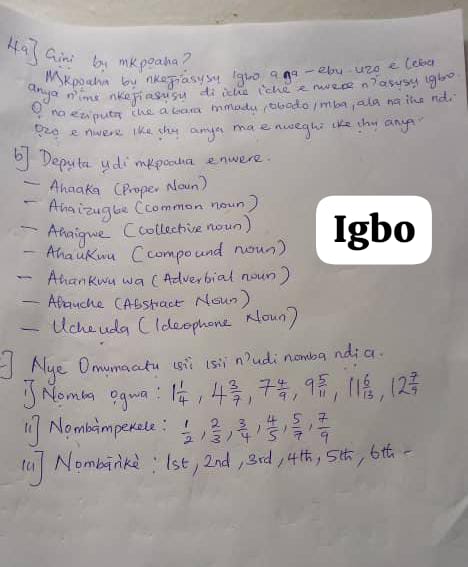 4a] Gini bụ mkpoaha?
Mkpoaha bụ nkejiasụsụ Igbo a ga-ebu ụzọ e leba
anya n'ime nkejiasụsụ di iche iche e nwere n'asụsụ Igbo.
Ọ na ezipụta ihe a bara mmadụ, obodo, mba, ala na ihe ndi
ọzọ e nwere ike ihụ anya ma e nweghi ike ihụ anya.
b] Depụta ụdi mkpoaha e nwere.
– Ahaaka (Proper Noun)
– Ahaizugbe (Common noun)
– Ahaigwe (collective noun)
– Ahaukwu (compound noun)
– Ahankwuwa (Adverbial noun)
– Ahauche (Abstract Noun)
– Uche uda (Ideophone Noun)
c] Nye Ọmụmaatụ isii isii n'udi nọmba ndi a.
i] Nọmba ogwa: 1 1/4, 4 3/7, 7 4/9, 9 5/11, 11 6/13, 12 7/9
ii] Nọmbàmpekele: 1/2, 2/3, 3/4, 4/5, 5/7, 7/9
iii] Nọmbànkè: 1st, 2nd, 3rd, 4th, 5th, 6th -
Igbo